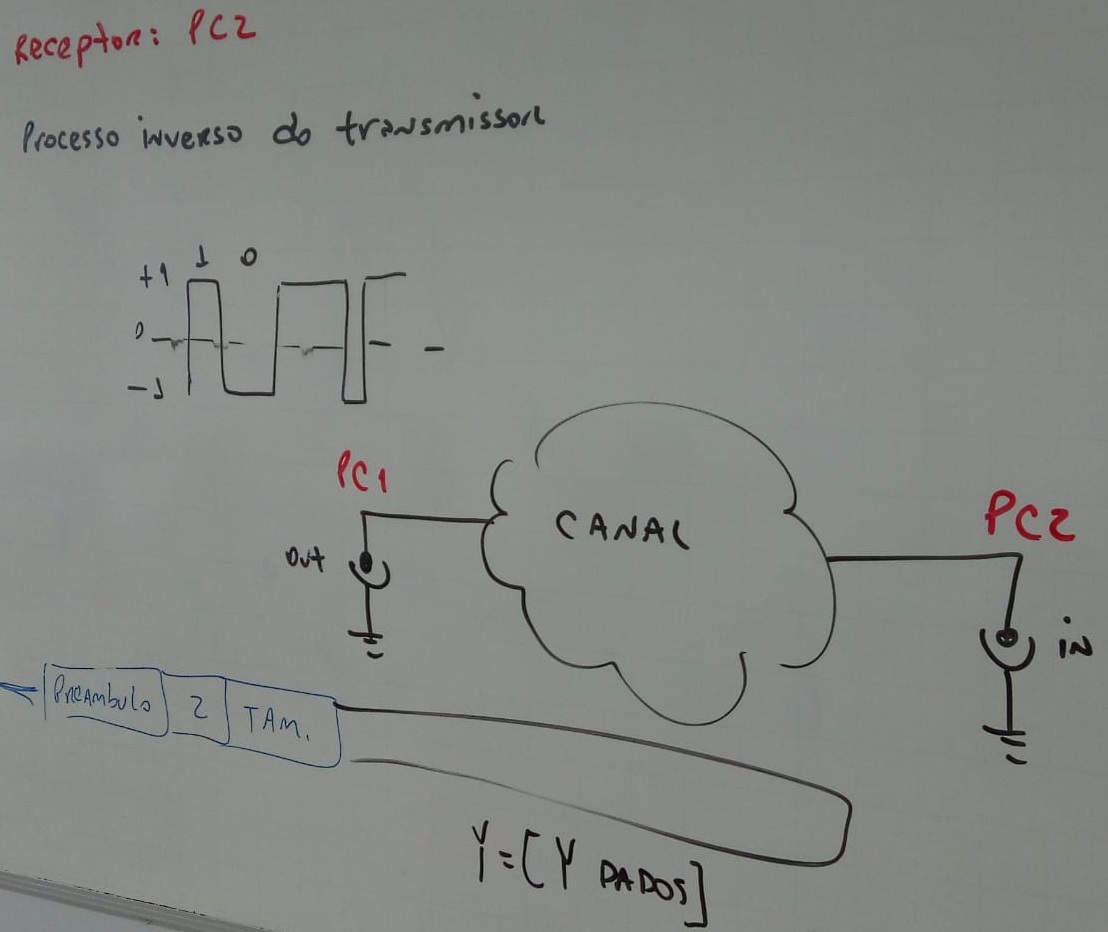 Receptor: PC2
Processo inverso do transmissor
+1 1 0
0
-1
PC1
CANAL
PC2
out
in
Preambulo 2 TAM.
Y=[Y DADOS]